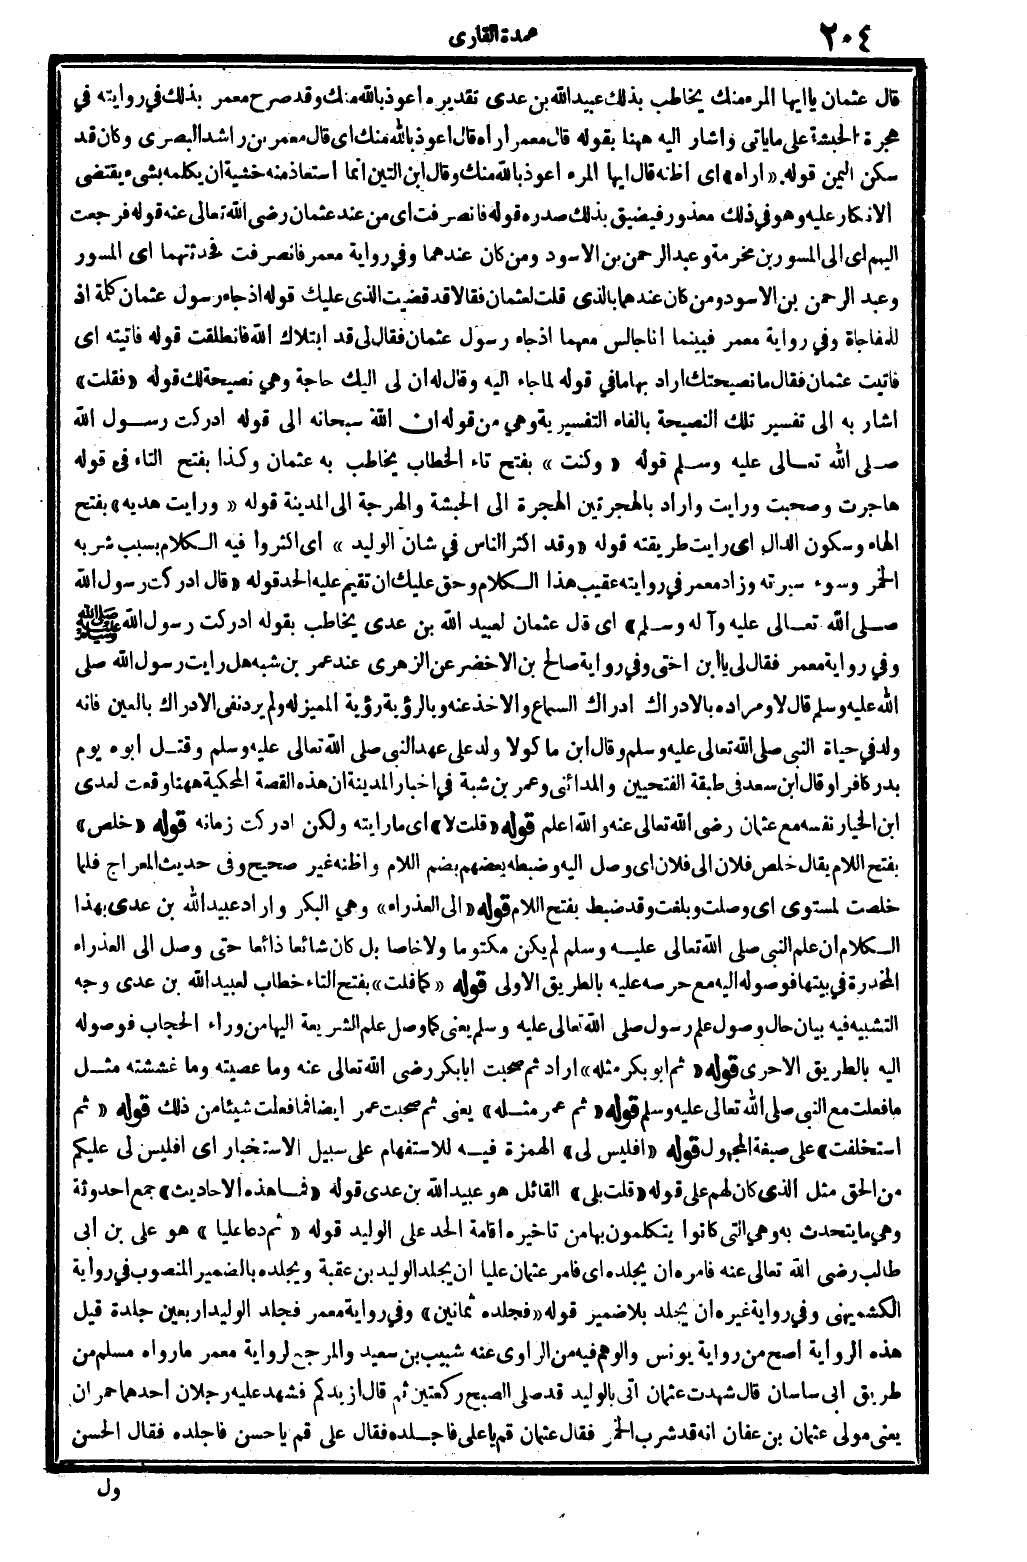 ٢٠٤
عمدة القارى
قال عثمان يا ايها المرء منك يخاطب بذلك عبيد الله بن عدى تقديره اعوذ بالله منك وقد صرح معمر بذلك في روايته في
هجرة الحبشة على ماياتى واشار اليه ههنا بقوله قال معمر أراه قال اعوذ بالله منك اى قال معمر بن راشد البصرى وكان قد
سكن اليمن قوله «اراه» اى اظنه قال ايها المرء اعوذ بالله منك وقال ابن التين انما استعاذ منه خشية ان يكلمه بشىء يقتضى
الانكار عليه وهو في ذلك معذور فيضيق بذلك صدره قوله فانصرفت اى من عند عثمان رضى الله تعالى عنه قوله فرجعت
اليهم اى الى المسور بن مخرمة وعبد الرحمن بن الاسود ومن كان عندهما وفي رواية معمر فانصرفت فحدثتهما اى المسور
وعبد الرحمن بن الاسود ومن كان عندهما بالذى قلت لعثمان فقالا قد قضيت الذى عليك قوله اذ جاء رسول عثمان كلمة اذ
للمفاجاة وفي رواية معمر فبينما انا جالس معهما اذ جاء رسول عثمان فقال لى قد ابتلاك الله فانطلقت قوله فاتيته اى
فاتيت عثمان فقال ما نصيحتك اراد بها ما في قوله لما جاء اليه وقال له ان لى اليك حاجة وهي نصيحة لك قوله «فقلت»
اشار به الى تفسير تلك النصيحة بالفاء التفسيرية وهي من قوله ان الله سبحانه الى قوله ادركت رسول الله
صلى الله تعالى عليه وسلم قوله «وكنت» بفتح تاء الخطاب يخاطب به عثمان وكذا بفتح التاء فى قوله
هاجرت وصحبت ورايت واراد بالهجرتين الهجرة الى الحبشة والهرجة الى المدينة قوله «ورايت هديه» بفتح
الهاء وسكون الدال اى رايت طريقته قوله «وقد اكثر الناس في شان الوليد» اى اكثروا فيه الكلام بسبب شربه
الخمر وسوء سيرته وزاد معمر في روايته عقيب هذا الكلام وحق عليك ان تقيم عليه الحد قوله «قال ادركت رسول الله
صلى الله تعالى عليه وآله وسلم» اى قال عثمان لعبيد الله بن عدى يخاطب بقوله ادركت رسول الله ﷺ
وفي رواية معمر فقال لى يا ابن اختى وفي رواية صالح بن الاخضر عن الزهرى عند عمر بن شبه هل رايت رسول الله صلى
الله عليه وسلم قال لا ومراده بالادراك ادراك السماع والاخذ عنه وبالرؤية رؤية المميز له ولم يرد نفى الادراك بالعين فانه
ولد في حياة النبي صلى الله تعالى عليه وسلم وقال ابن ماكولا ولد على عهد النبي صلى الله تعالى عليه وسلم وقتل ابوه يوم
بدر كافرا وقال ابن سعد فى طبقة الفتحيين والمدائنى وعمر بن شبة في اخبار المدينة ان هذه القصة المحكية ههنا وقعت لعدى
ابن الخيار نفسه مع عثمان رضى الله تعالى عنه والله اعلم قوله «قلت لا» اى ما رايته ولكن ادركت زمانه قوله «خلص»
بفتح اللام يقال خلص فلان الى فلان اى وصل اليه وضبطه بعضهم بضم اللام واظنه غير صحيح وفى حديث المعراج فلما
خلصت لمستوى اى وصلت وبلغت وقد ضبط بفتح اللام قوله «الى العذراء» وهي البكر واراد عبيد الله بن عدى بهذا
الكلام ان علم النبي صلى الله تعالى عليه وسلم لم يكن مكتوما ولا خاصا بل كان شائعا ذائعا حتى وصل الى العذراء
المخدرة في بيتها فوصوله اليه مع حرصه عليه بالطريق الاولى قوله «كما قلت» بفتح التاء خطاب لعبيد الله بن عدى وجه
التشبيه فيه بيان حال وصول علم رسول صلى الله تعالى عليه وسلم يعنى كما وصل علم الشريعة اليها من وراء الحجاب فوصوله
اليه بالطريق الاحرى قوله «ثم ابو بكر مثله» اراد ثم صحبت ابا بكر رضى الله تعالى عنه وما عصيته وما غششته مثل
ما فعلت مع النبي صلى الله تعالى عليه وسلم قوله «ثم عمر مثله» يعنى ثم صحبت عمر ايضا فما فعلت شيئا من ذلك قوله «ثم
استخلفت» على صيغة المجهول قوله «افليس لى» الهمزة فيه للاستفهام على سبيل الاستخبار اى افليس لى عليكم
من الحق مثل الذى كان لهم على قوله «قلت بلى» القائل هو عبيد الله بن عدى قوله «فما هذه الاحاديث» جمع احدوثة
وهي ما يتحدث به وهي التى كانوا يتكلمون بها من تاخيره اقامة الحد على الوليد قوله «ثم دعا عليا» هو على بن أبى
طالب رضى الله تعالى عنه فامره ان يجلده اى فامر عثمان عليا ان يجلد الوليد بن عقبة ويجلده بالضمير المنصوب في رواية
الكشميهنى وفي رواية غيره ان يجلد بلا ضمير قوله «فجلده ثمانين» وفي رواية معمر فجلد الوليد اربعين جلدة قيل
هذه الرواية اصح من رواية يونس والوهم فيه من الراوى عنه شبيب بن سعيد والمرجح لرواية معمر ما رواه مسلم من
طريق ابى ساسان قال شهدت عثمان اتى بالوليد قد صلى الصبح ركعتين ثم قال أزيدكم فشهد عليه رجلان احدهما حمران
يعنى مولى عثمان بن عفان انه قد شرب الخمر فقال عثمان قم يا على فاجلده فقال على قم يا حسن فاجلده فقال الحسن
ول